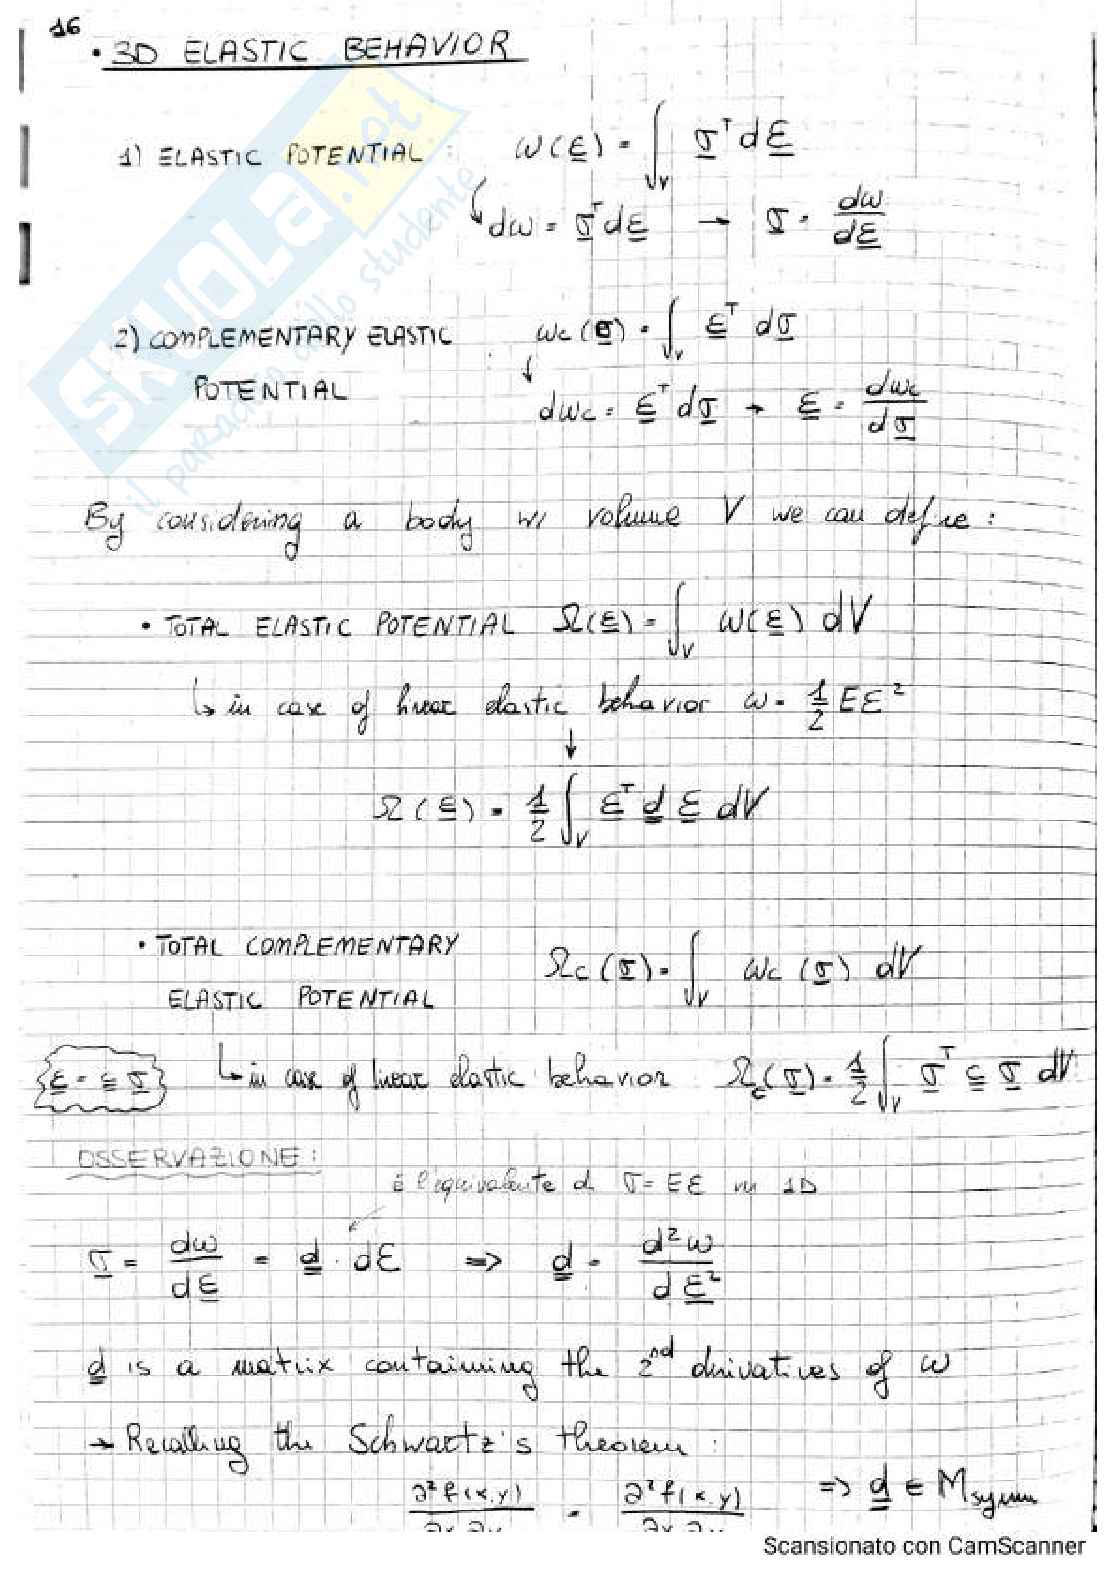 16
• 3D ELASTIC BEHAVIOR
1) ELASTIC POTENTIAL : ω(ε) = ∫_V σ^T dε
↳ dω = σ^T dε → σ = dω/dε
2) COMPLEMENTARY ELASTIC POTENTIAL ωc(σ) = ∫_V ε^T dσ
↓
dωc = ε^T dσ → ε = dωc/dσ
By considering a body w/ volume V we can define :
• TOTAL ELASTIC POTENTIAL Ω(ε) = ∫_V ω(ε) dV
↳ in case of linear elastic behavior ω = 1/2 Eε²
↓
Ω(ε) = 1/2 ∫_V ε^T d ε dV
• TOTAL COMPLEMENTARY ELASTIC POTENTIAL Ωc(σ) = ∫_V ωc(σ) dV
ε = c σ ↳ in case of linear elastic behavior Ωc(σ) = 1/2 ∫_V σ^T c σ dV
OSSERVAZIONE :
è l'equivalente di σ = Eε in 1D
σ = dω/dε = d · dε ⇒ d = d²ω/dε²
d is a matrix containing the 2nd derivatives of ω
→ Recalling the Schwartz's theorem :
∂²f(x,y)/∂x∂y = ∂²f(x,y)/∂x∂y ⇒ d ∈ Msymm
SKUOLA.net
il paradiso dello studente
Scansionato con CamScanner